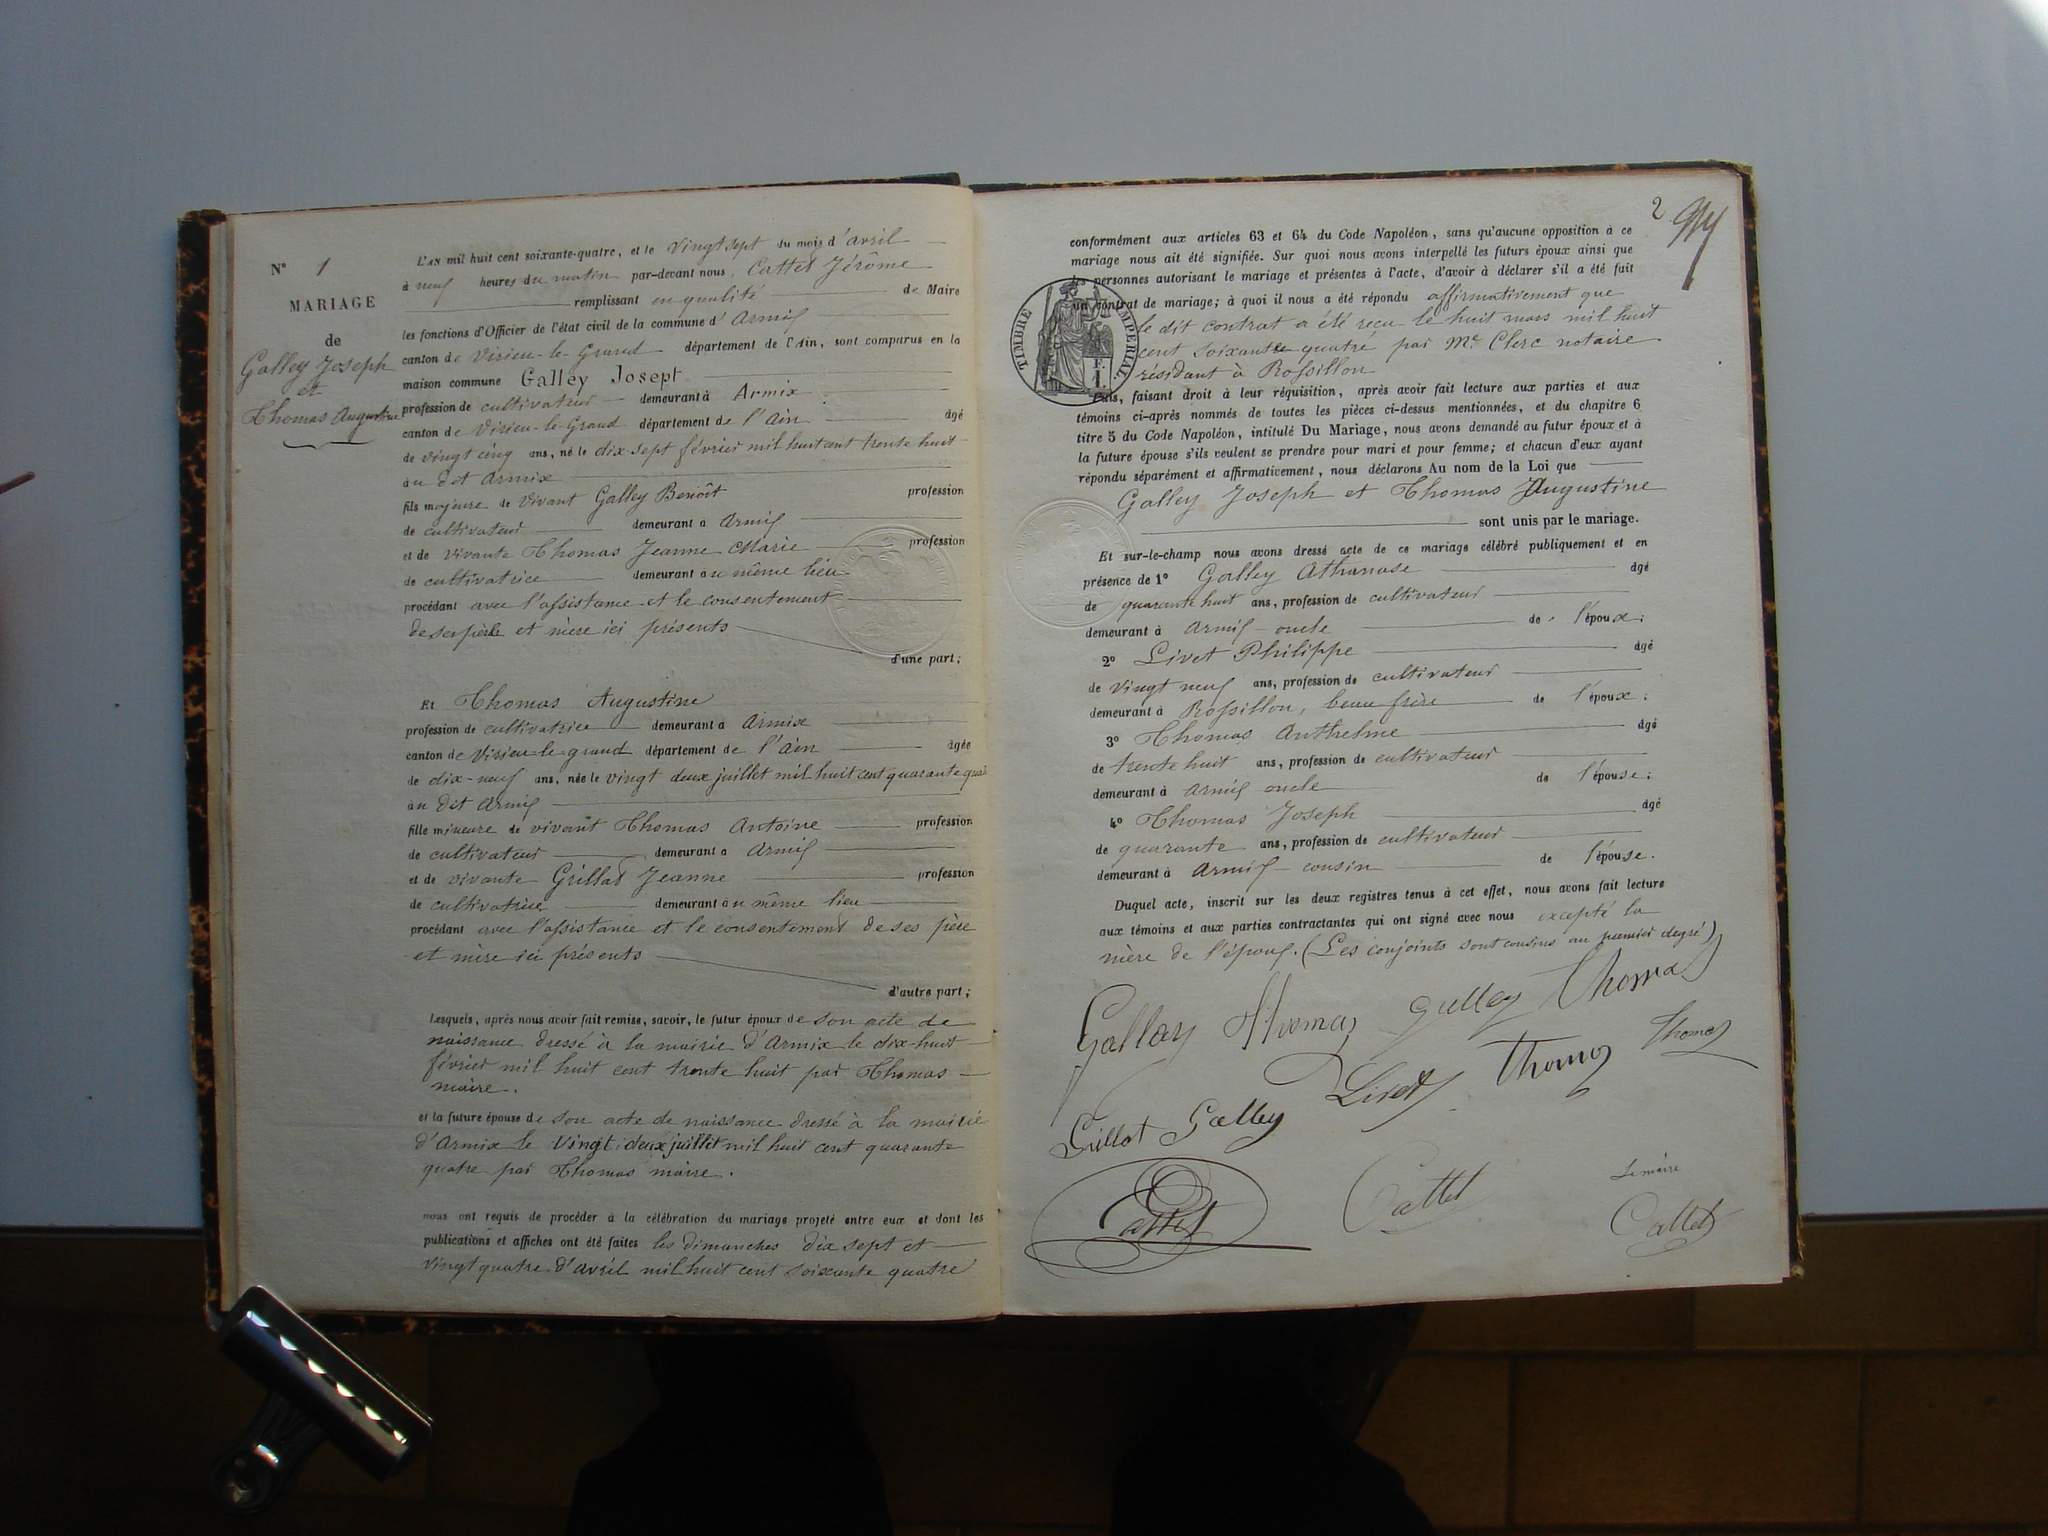 N° 1
MARIAGE
de
Galley Joseph
et
Thomas Augustine
L'AN mil huit cent soixante-quatre, et le vingt sept du mois d'avril
à neuf heures du matin par-devant nous, Cattet Jérôme
remplissant en qualité de Maire
les fonctions d'Officier de l'état civil de la commune d'Armix
canton de Virieu-le-Grand département de l'Ain, sont comparus en la
maison commune Galley Joseph
profession de cultivateur demeurant à Armix
canton de Virieu-le-Grand département de l'Ain âgé
de vingt cinq ans, né le dix-sept février mil huit cent trente huit
au dit Armix
fils majeure de vivant Galley Benoît profession
de cultivateur demeurant à Armix
et de vivante Thomas Jeanne Marie profession
de cultivatrice demeurant au même lieu
procédant avec l'assistance et le consentement
de ses père et mère ici présents
d'une part;
Et Thomas Augustine
profession de cultivatrice demeurant à Armix
canton de Virieu-le-grand département de l'Ain âgée
de dix-neuf ans, née le vingt deux juillet mil huit cent quarante quat
au dit Armix
fille mineure de vivant Thomas Antoine profession
de cultivateur demeurant à Armix
et de vivante Grillat Jeanne profession
de cultivatrice demeurant au même lieu
procédant avec l'assistance et le consentement de ses père
et mère ici présents
d'autre part;
Lesquels, après nous avoir fait remise, savoir, le futur époux de son acte de
naissance dressé à la mairie d'Armix le dix-huit
février mil huit cent trente huit par Thomas
maire.
et la future épouse de son acte de naissance dressé à la mairie
d'Armix le vingt deux juillet mil huit cent quarante
quatre par Thomas maire.
nous ont requis de procéder à la célébration du mariage projeté entre eux et dont les
publications et affiches ont été faites les dimanches dix sept et
vingt quatre d'avril mil huit cent soixante quatre
2
conformément aux articles 63 et 64 du Code Napoléon, sans qu'aucune opposition à ce
mariage nous ait été signifiée. Sur quoi nous avons interpellé les futurs époux ainsi que
les personnes autorisant le mariage et présentes à l'acte, d'avoir à déclarer s'il a été fait
un contrat de mariage; à quoi il nous a été répondu affirmativement que
le dit contrat a été reçu le huit mars mil huit
cent soixante quatre par Me Clerc notaire
résidant à Rossillon
TIMBRE IMPÉRIAL
Puis, faisant droit à leur réquisition, après avoir fait lecture aux parties et aux
témoins ci-après nommés de toutes les pièces ci-dessus mentionnées, et du chapitre 6
titre 5 du Code Napoléon, intitulé Du Mariage, nous avons demandé au futur époux et à
la future épouse s'ils veulent se prendre pour mari et pour femme; et chacun d'eux ayant
répondu séparément et affirmativement, nous déclarons Au nom de la Loi que
Galley Joseph et Thomas Augustine
sont unis par le mariage.
Et sur-le-champ nous avons dressé acte de ce mariage célébré publiquement et en
présence de 1° Galley Athanase âgé
de quarante huit ans, profession de cultivateur
demeurant à Armix oncle de l'époux;
2° Livet Philippe âgé
de vingt neuf ans, profession de cultivateur
demeurant à Rossillon, beau frère de l'époux;
3° Thomas Anthelme âgé
de trente huit ans, profession de cultivateur
demeurant à Armix oncle de l'épouse;
4° Thomas Joseph âgé
de quarante ans, profession de cultivateur
demeurant à Armix cousin de l'épouse.
Duquel acte, inscrit sur les deux registres tenus à cet effet, nous avons fait lecture
aux témoins et aux parties contractantes qui ont signé avec nous excepté la
mère de l'époux. (Les conjoints sont cousins au premier degré)
Galley Thomas Galley Thomas
Livet Thomas Thomas
Grillat Galley
Cattet Cattet
Le maire
Cattet